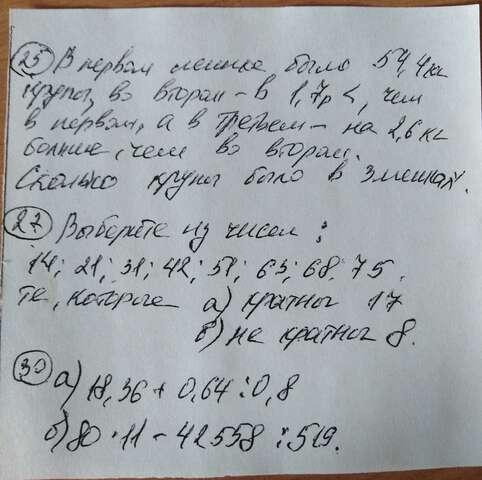 25 В первом мешке было 54,4 кг
крупы, во втором – в 1,7 р <, чем
в первом, а в третьем – на 2,6 кг
больше, чем во втором.
Сколько крупы было в 3 мешках.
27 Выберете из чисел:
14; 21; 31; 42; 51; 63; 68; 75.
те, которые а) кратног 17
б) не кратног 8.
30 а) 18,36 + 0,64 : 0,8
б) 80 · 11 - 42558 : 519.